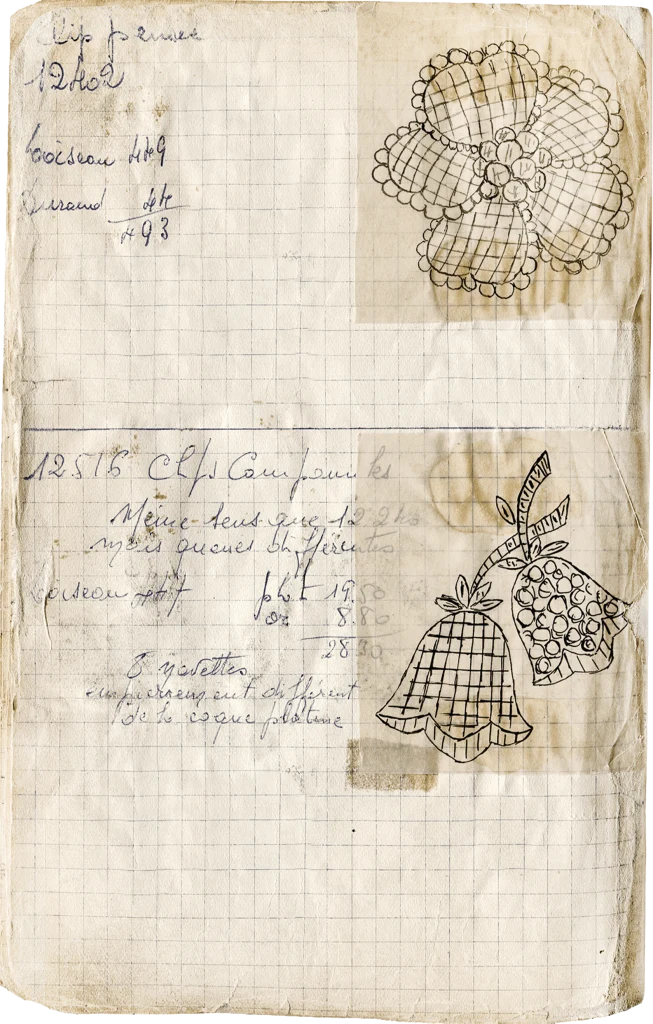 Clip pensée
12402
Loiseau 449
Durand 44
493
12516 Clips Campanules
Même sens que 12240
mais queues différentes
Loiseau 447 plat 19.50
or 8.80
28.30
8 navettes
empierrement différent
de la coque platine